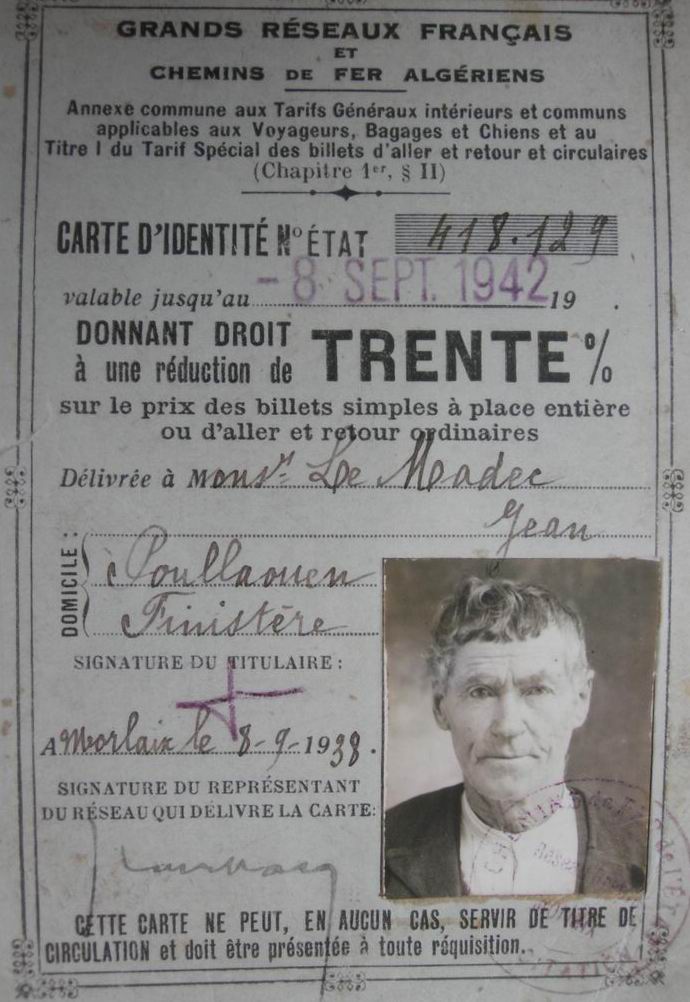 GRANDS RÉSEAUX FRANÇAIS
ET
CHEMINS DE FER ALGÉRIENS
Annexe commune aux Tarifs Généraux intérieurs et communs
applicables aux Voyageurs, Bagages et Chiens et au
Titre I du Tarif Spécial des billets d'aller et retour et circulaires
(Chapitre 1er, § II)
CARTE D'IDENTITÉ N° ÉTAT 418.129
valable jusqu'au - 8 SEPT. 1942 19 .
DONNANT DROIT
à une réduction de TRENTE %
sur le prix des billets simples à place entière
ou d'aller et retour ordinaires
Délivrée à Monsr Le Madec
Jean
DOMICILE : à Poullaouen
Finistère
SIGNATURE DU TITULAIRE :
A Morlaix le 8-9-1938.
SIGNATURE DU REPRÉSENTANT
DU RÉSEAU QUI DÉLIVRE LA CARTE:
CHEMINS DE FER de l'ÉTAT
CETTE CARTE NE PEUT, EN AUCUN CAS, SERVIR DE TITRE DE
CIRCULATION et doit être présentée à toute réquisition.